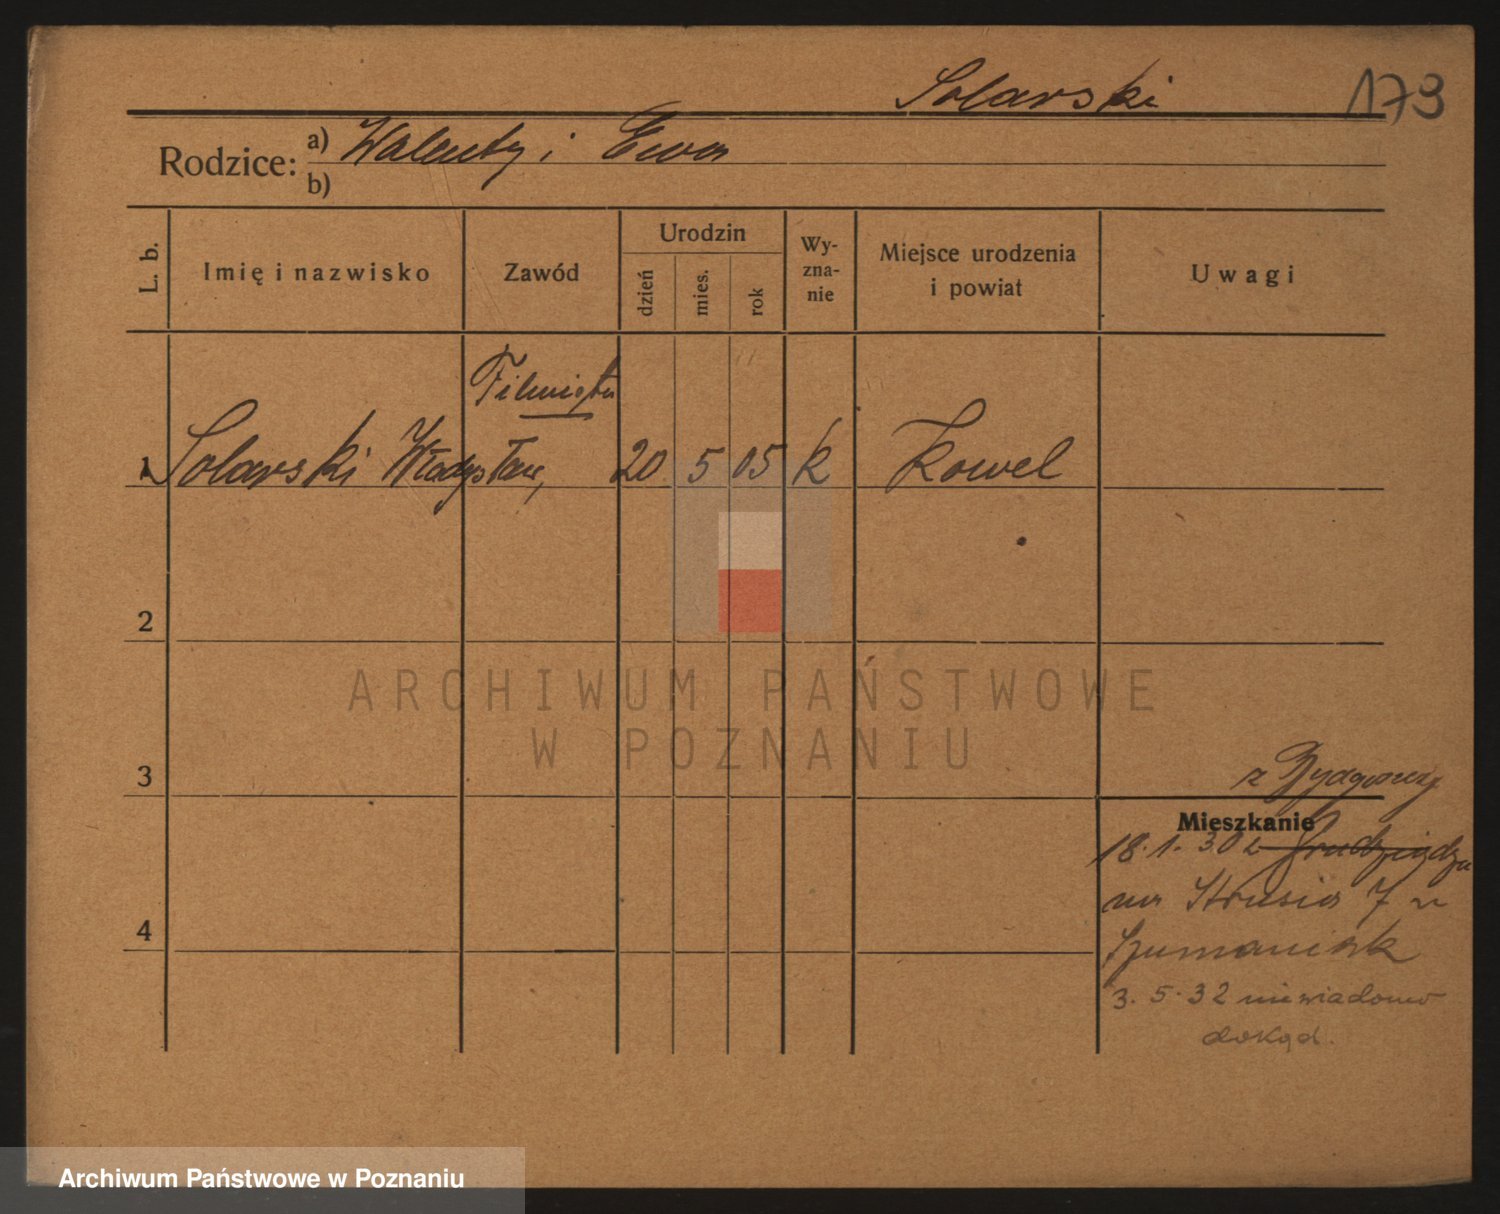 Solarski 173
Rodzice: a) Walenty i Ewa
b)
L. b.
Imię i nazwisko
Zawód
Urodzin
dzień
mies.
rok
Wy-
zna-
nie
Miejsce urodzenia
i powiat
Uwagi
Filmista
1 Solarski Władysław, 20 5 05 k Kowel
2
ARCHIWUM PAŃSTWOWE
W POZNANIU
3
z Bydgoszczy
Mieszkanie
18.1.30 z Grudziądza
na Strusia 7 u
4
Szumaniak
3.5.32 niewiadomo
dokąd.
Archiwum Państwowe w Poznaniu